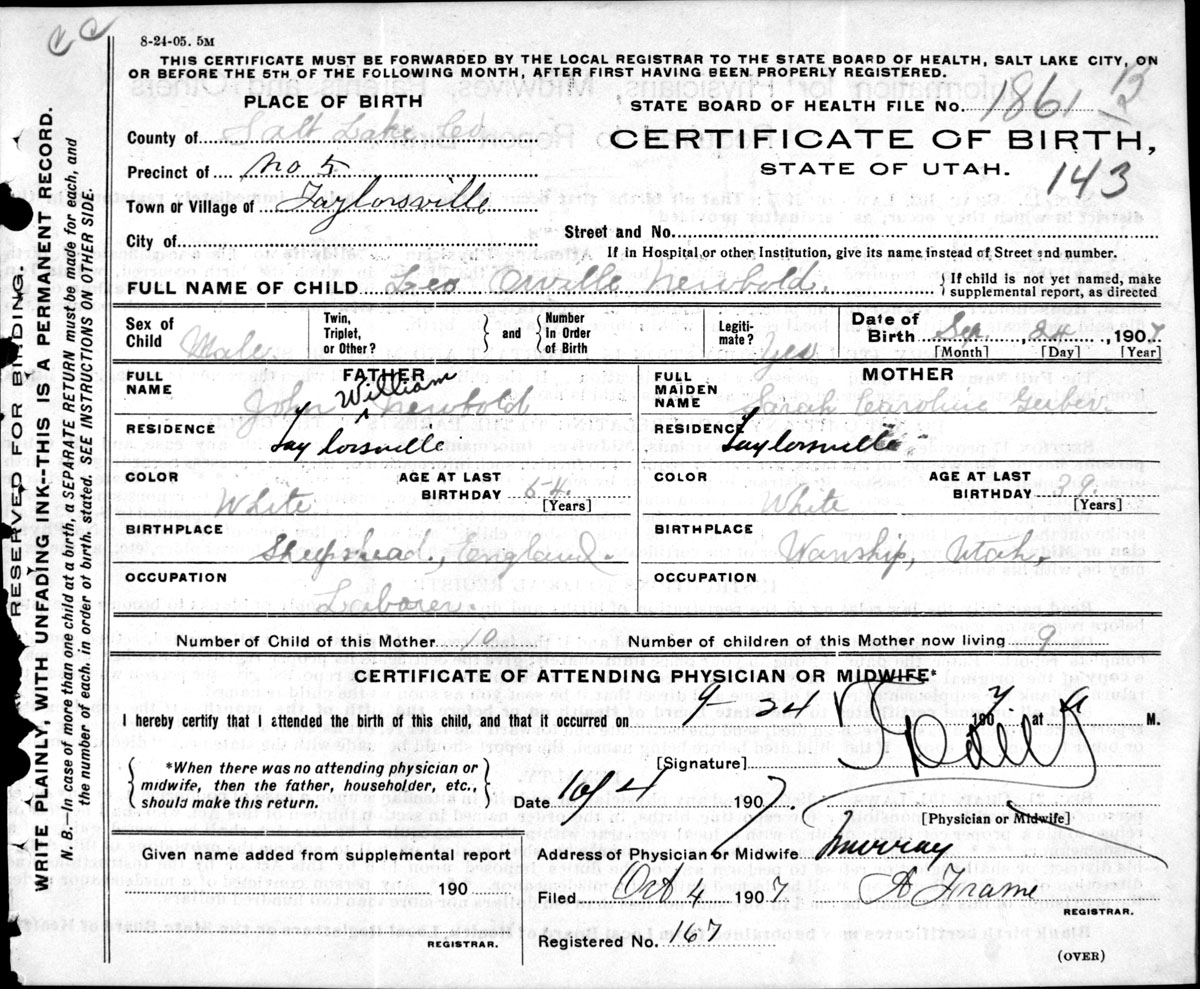 C C
8-24-05. 5M
THIS CERTIFICATE MUST BE FORWARDED BY THE LOCAL REGISTRAR TO THE STATE BOARD OF HEALTH, SALT LAKE CITY, ON
OR BEFORE THE 5TH OF THE FOLLOWING MONTH, AFTER FIRST HAVING BEEN PROPERLY REGISTERED.
PLACE OF BIRTH
STATE BOARD OF HEALTH FILE No. 1861 B
County of Salt Lake Co
CERTIFICATE OF BIRTH,
STATE OF UTAH.
143
Precinct of No 5
Town or Village of Taylorsville
City of
Street and No.
If in Hospital or other Institution, give its name instead of Street and number.
FULL NAME OF CHILD Leo Orville Newbold. {If child is not yet named, make
supplemental report, as directed
Sex of Child Male
Twin, Triplet, or Other?
and
Number in Order of Birth
Legitimate? Yes
Date of Birth Sep. 24, 1907
[Month] [Day] [Year]
FATHER
FULL NAME John William Newbold
RESIDENCE
Taylorsville
COLOR White
AGE AT LAST BIRTHDAY 54. [Years]
BIRTHPLACE
Shepshead, England.
OCCUPATION
Laborer.
MOTHER
FULL MAIDEN NAME Sarah Caroline
RESIDENCE
Taylorsville
COLOR White
AGE AT LAST BIRTHDAY 39. [Years]
BIRTHPLACE
Wanship, Utah.
Number of Child of this Mother 10
Number of children of this Mother now living 9
CERTIFICATE OF ATTENDING PHYSICIAN OR MIDWIFE*
I hereby certify that I attended the birth of this child, and that it occurred on 9-24 1907, at a M.
[Signature]
{*When there was no attending physician or
midwife, then the father, householder, etc.,
should make this return.}
Date 10/4 1907.
[Physician or Midwife]
Given name added from supplemental report
190
REGISTRAR.
Address of Physician or Midwife Murray
Filed Oct 4 1907 A Frame
REGISTRAR.
Registered No. 167
(OVER)
RESERVED FOR BINDING.
WRITE PLAINLY, WITH UNFADING INK-THIS IS A PERMANENT RECORD.
N. B.—In case of more than one child at a birth, a SEPARATE RETURN must be made for each, and
the number of each, in order of birth, stated. SEE INSTRUCTIONS ON OTHER SIDE.